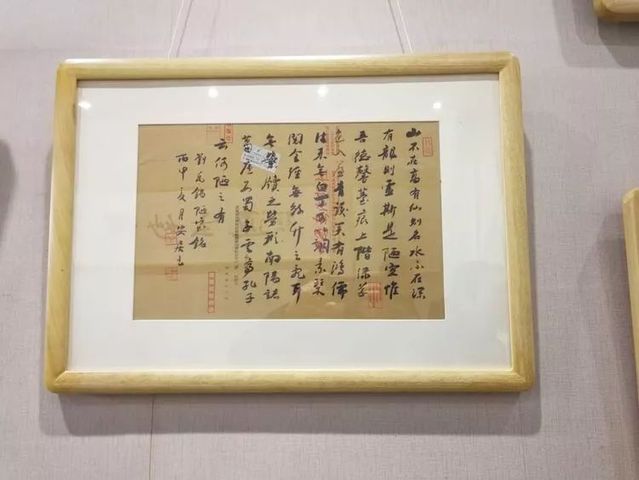 山不在高有仙則名水不在深
有龍則靈斯是陋室惟
吾德馨苔痕上階綠草
色入簾青談笑有鴻儒
往來無白丁可調素琴
閱金經無絲竹之亂耳
無案牘之勞形南陽諸
葛廬西蜀子雲亭孔子
云何陋之有
劉禹錫陋室銘
丙申夏月